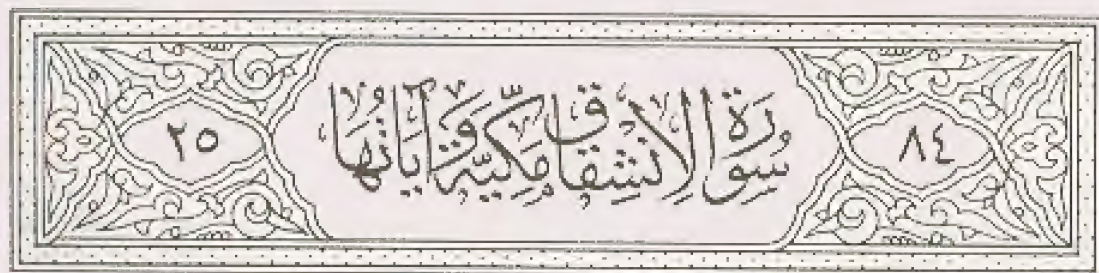 ٨٤ سُورَةُ الِانْشِقَاقِ مَكِّيَّةٌ وَآيَاتُهَا ٢٥